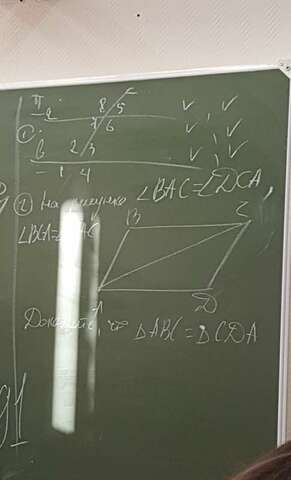 а 8 5
① 7 6
в 2 3
1 4
② На рисунке ∠BAC=∠DCA,
∠BCA=∠
B C
A D
Докажите, что △ABC=△CDA
91